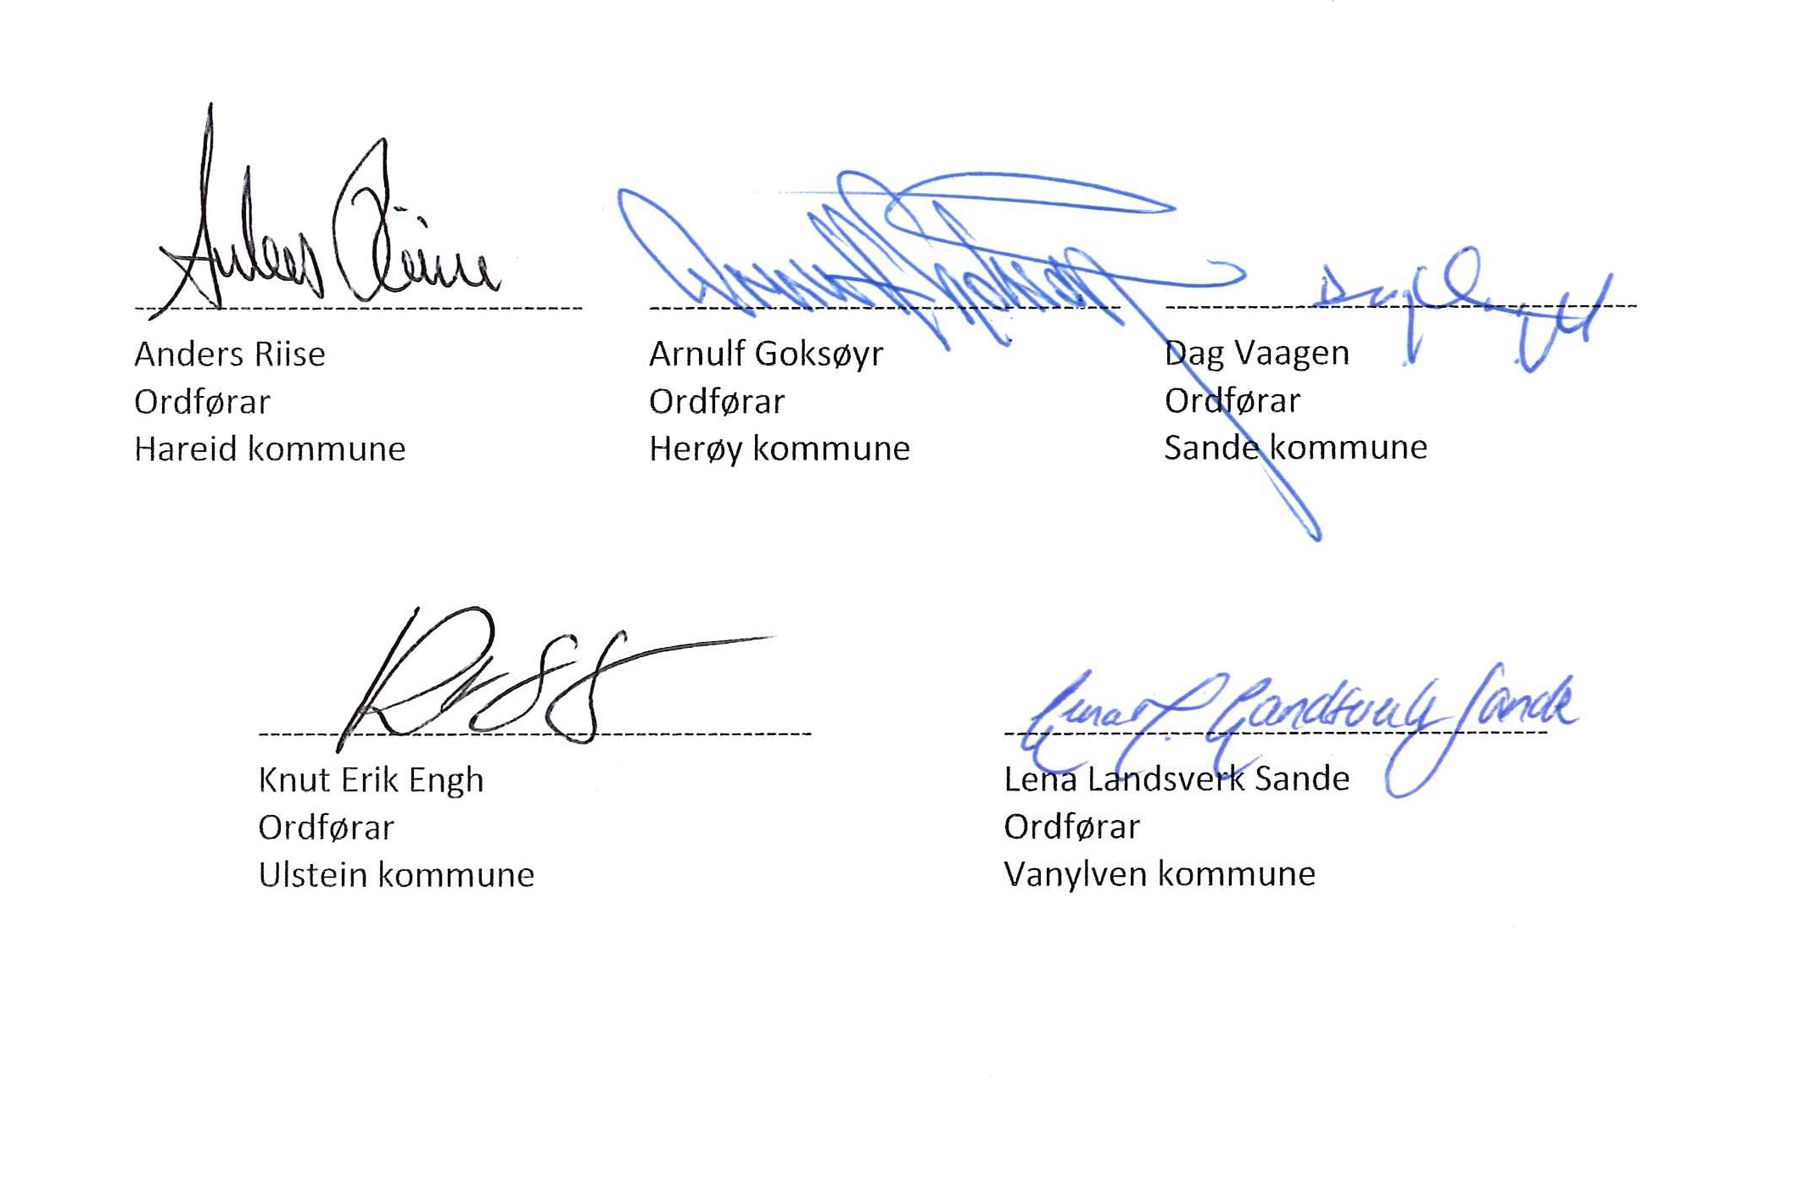 Anders Riise
Anders Riise
Ordførar
Hareid kommune
Arnulf Goksøyr
Ordførar
Herøy kommune
Dag Vaagen
Ordførar
Sande kommune
Knut Erik Engh
Ordførar
Ulstein kommune
Lena Landsverk Sande
Lena Landsverk Sande
Ordførar
Vanylven kommune